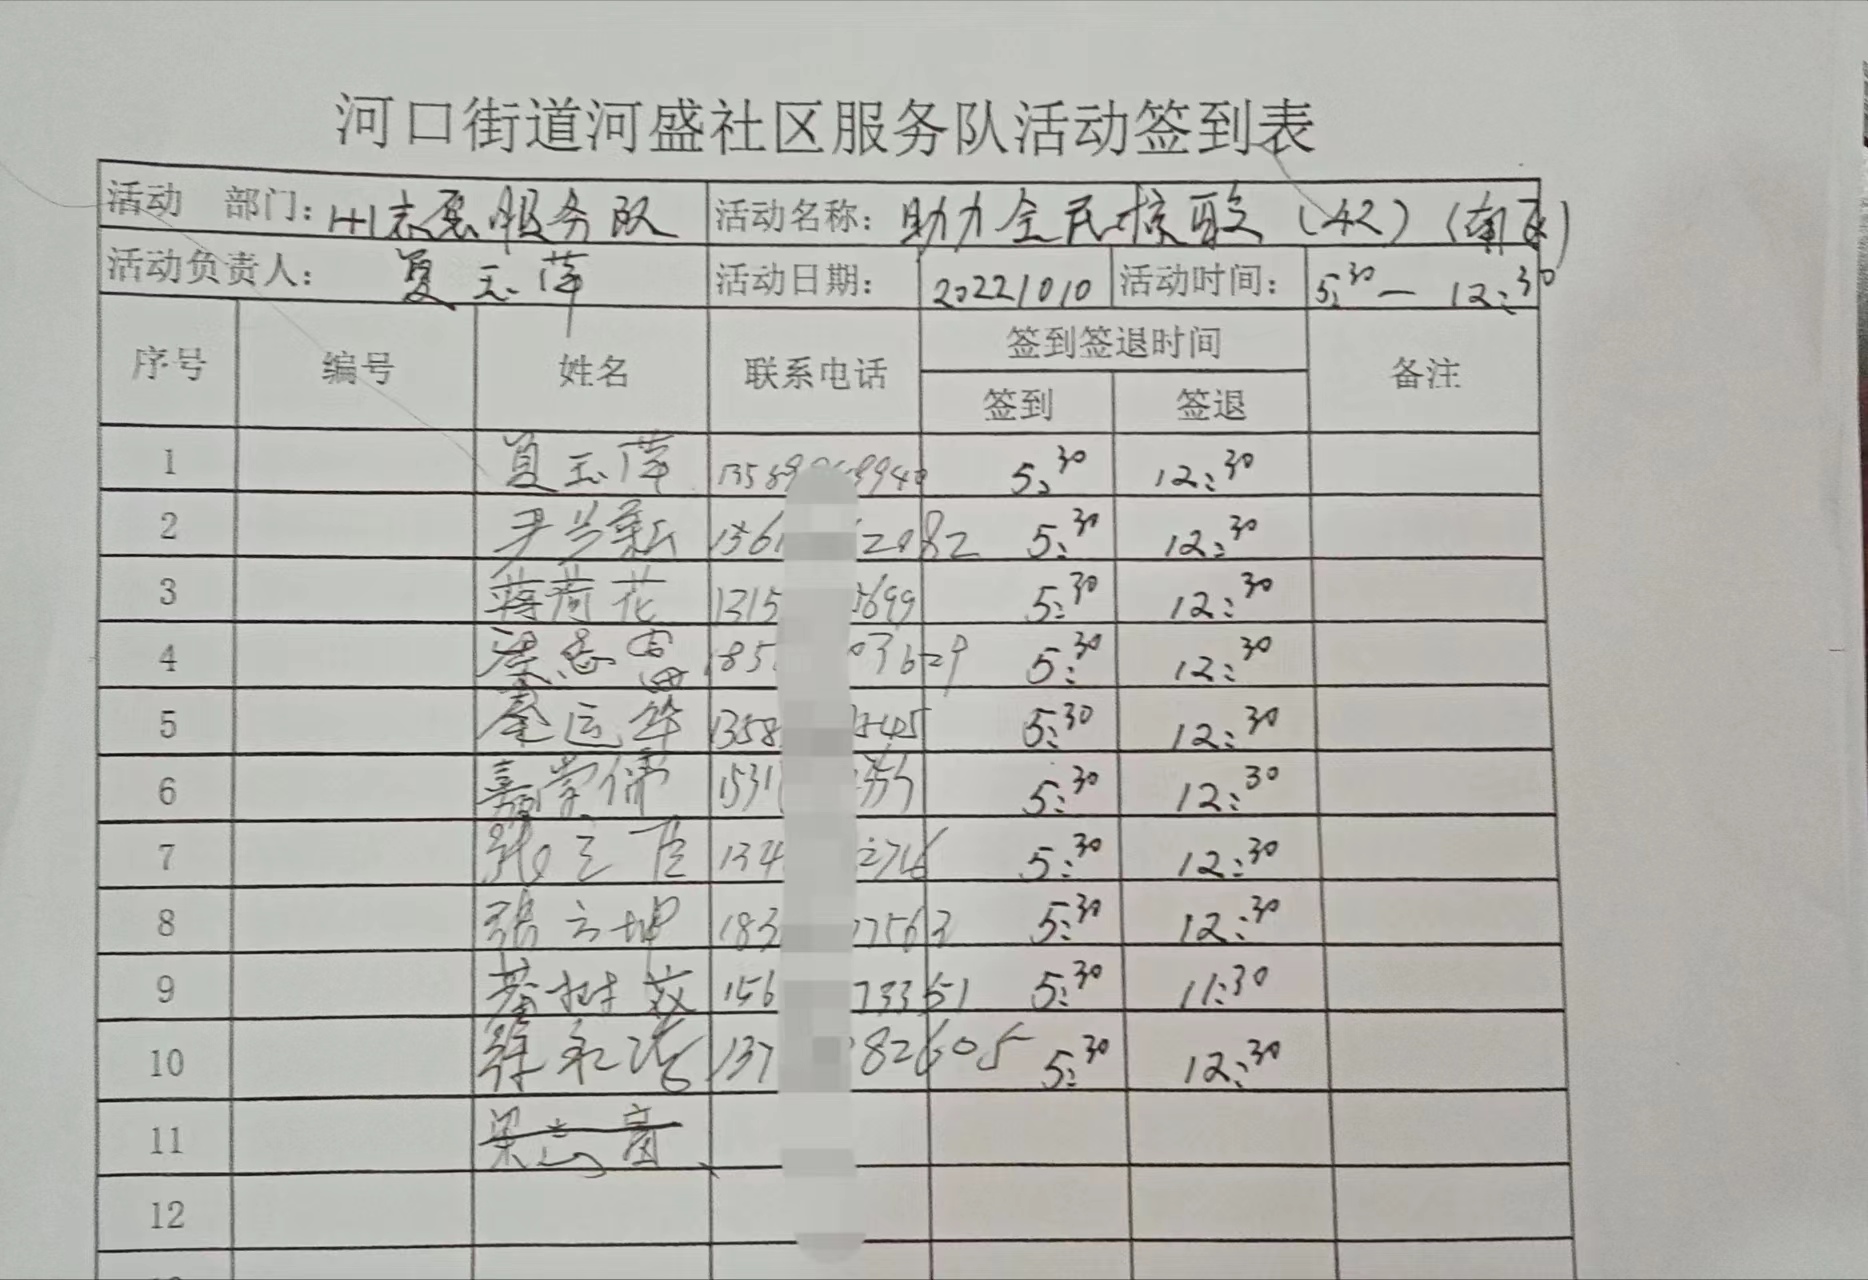 河口街道河盛社区服务队活动签到表
活动 部门: 1+1志愿服务队 活动名称: 助力全民核酸(42)(南区)
活动负责人: 夏玉萍 活动日期: 20221010 活动时间: 5:30— 12:30
序号 编号 姓名 联系电话 签到签退时间 备注
签到 签退
1 夏玉萍 5:30 12:30
2 5:30 12:30
3 蒋荷花 1315 699 5:30 12:30
4 梁志富 185 03629 5:30 12:30
5 秦运华 1358 545 5:30 12:30
6 1531 5:30 12:30
7 张立臣 134 276 5:30 12:30
8 张立坤 183 7563 5:30 12:30
9 156 73351 5:30 11:30
10 徐永浩 137 82605 5:30 12:30
11 梁志富
12